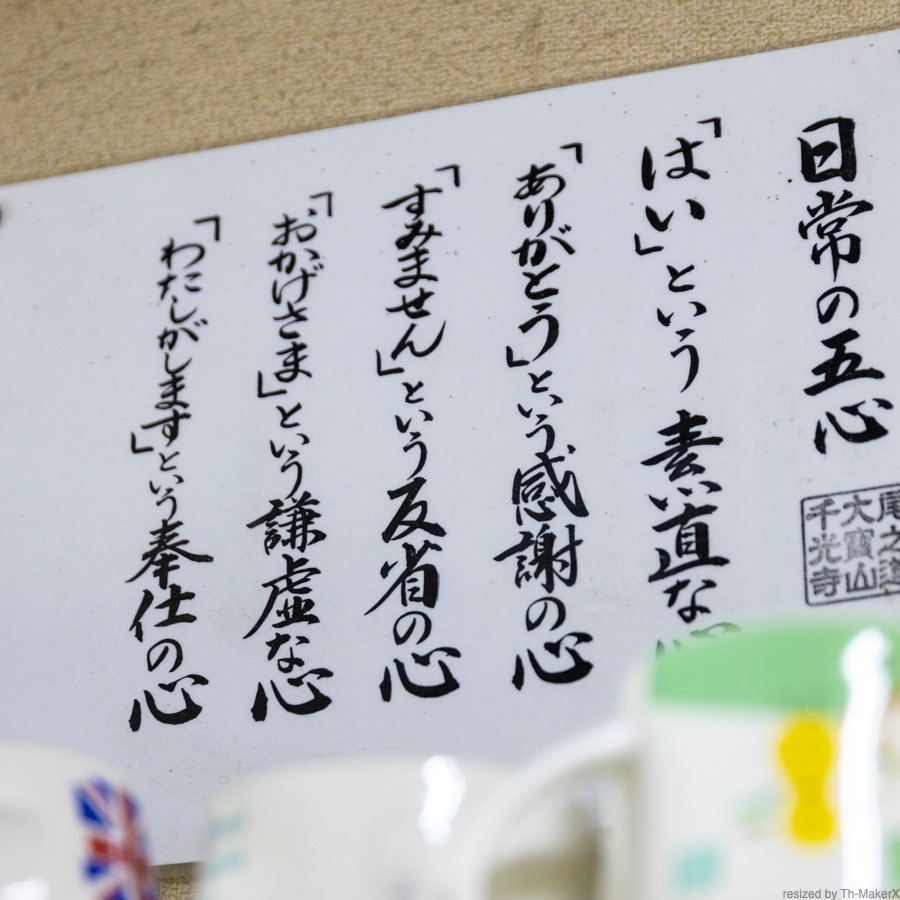 日常の五心
「はい」という素直な心
「ありがとう」という感謝の心
「すみません」という反省の心
「おかげさま」という謙虚な心
「わたしがします」という奉仕の心
尾之道
大寶山
千光寺
resized by Th-MakerX